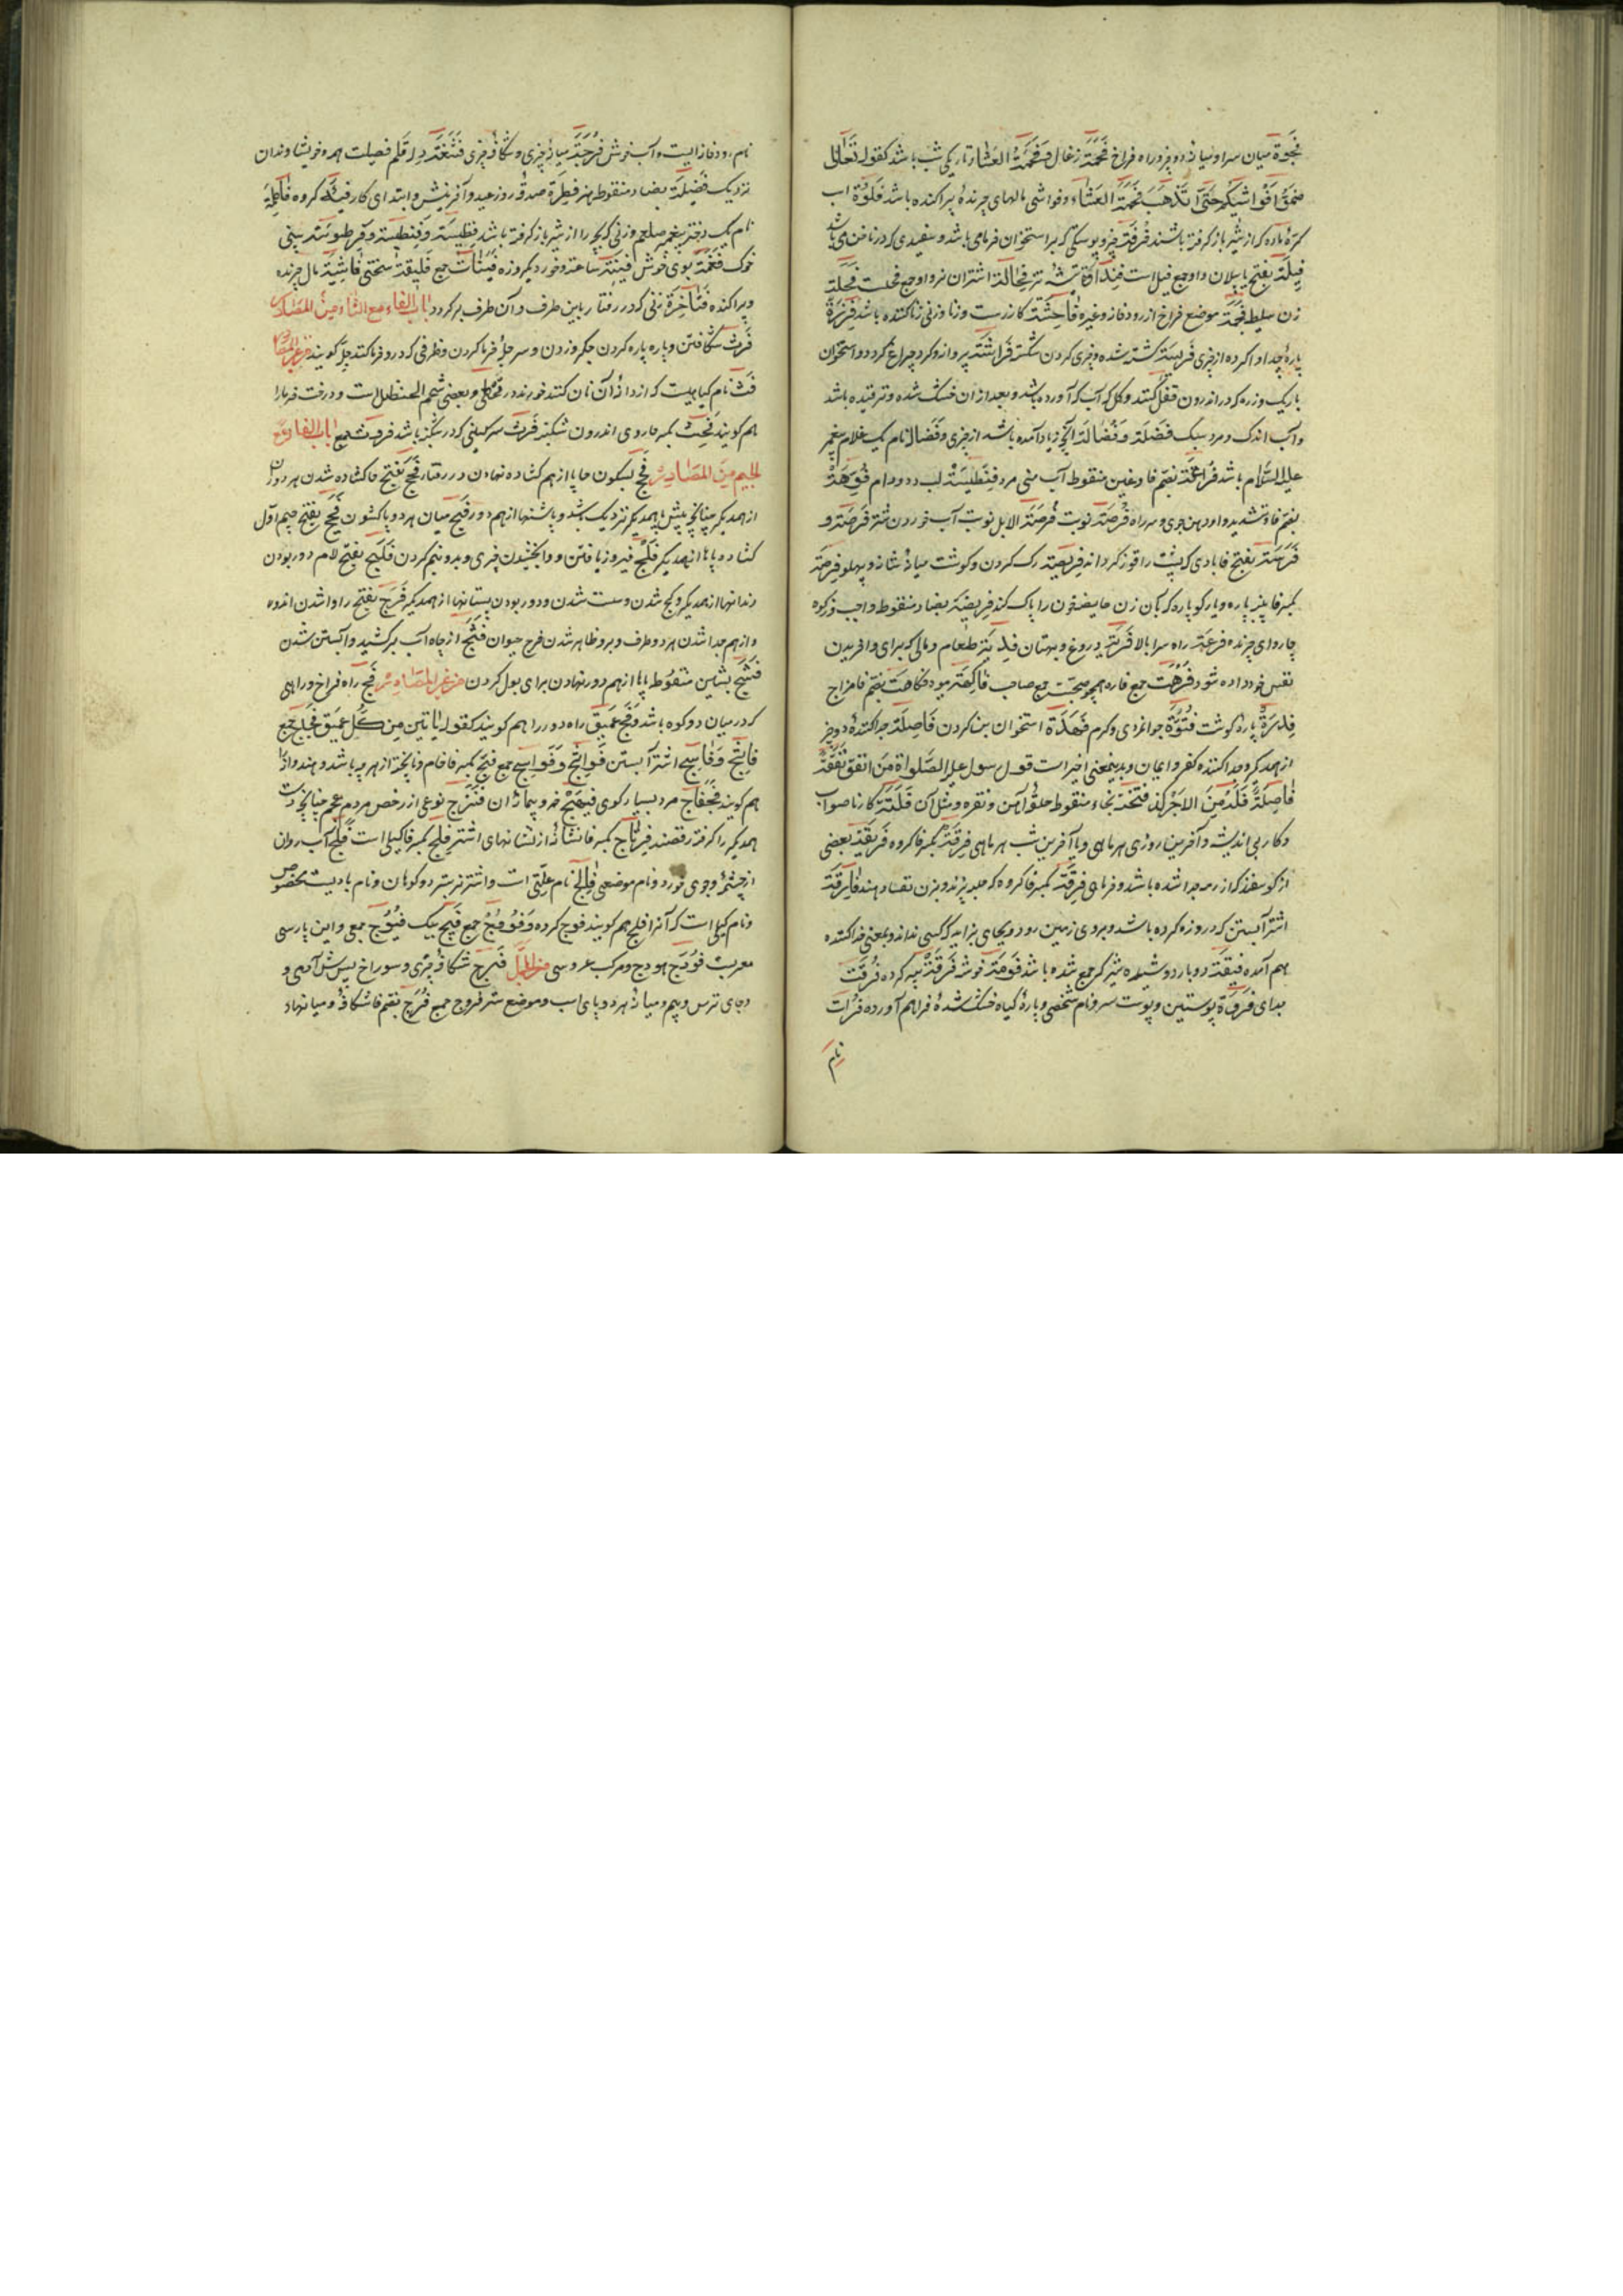 فجوة میان سرا و میانهٔ دو چیز و راه فراخ فحمة زغال و فحمة العشاء تاریکی شب باشد کقوله تعالی
ضموا فواشیکم حتی تذهب فحمة العشاء و فواشی مالهای چرندهٔ پراکنده باشد فلوة اسب
کرهٔ ماده که از شیر باز کرفته باشند فرقة چیز و پوستکی که بر استخوان خرما می باشد و سفیدی که در ناخن می باشد
فیلة بفتح یا پیلان و او جمع فیل است فحالة اشتران نر و او جمع فحلست فحلة
زن سلیط فجمة موضع فراخ از رودخانه و غیره فاحشة کار زشت و زنا و زنی زناکننده باشد فزرة
پارهٔ جدا واکرده از چیزی فریسة کشته شده و چیزی کردن شکسته فراشة پروانه که کرد چراغ کردد و استخوان
باریک و زره که در اندرون قفل کنند و کل که آب که آورده باشد و بعد از ان خشک شده و ترقیده باشد
و آب اندک و مرد سبک فضلة و فضالة آنچه زیاد آمده باشد از چیزی و فضاله نام یک غلام پیغمبر
علیه السلام باشد فراغة بضم فا و غین منقوط آب منی مرد فنطیسة لب دد و دام فوهة
بضم فا و تشدید واو دهن جوی و سر راه فرصة نوبت فرصة الابل نوبت آب خوردن شتر فرصة و
فرسة بفتح فا بادی که پشت را قوز کرداند فریصة رک کردن و کوشت میانهٔ شانه و پهلو فرصة
بکسر فا پنبه پاره و یا رکو پاره که بآن زن حایض خون را پاک کند فریضة بضاد منقوط واجب و زکوة
چاروای چرنده فرعة راه سرا بالا فریة دروغ و بهتان فدیة طعام و مالی که برای وا خریدن
نفس خود داده شود فرهة جمع فاره همچو صحبة جمع صاحب فاکهة میوه فکاهة بضم فا مزاح
فدرة پارهٔ کوشت فتوة جوانمردی و کرم فهدة استخوان بنا کردن فاصلة جدا کنندهٔ دو چیز
از همدیکر و جدا کننده کفر و ایمان و بدین معنی اخیر است قول رسول علیه الصلوة من انفق نفقة
فاصلة فله من الاجر کذا فتخة بخاء منقوط حلقهٔ آهن و نقره و مثل آن فلتة کار ناصواب
و کار بی اندیشه و آخرین روزی هر ماهی و یا آخرین شب هر ماهی فرقة بکسر فا کروه فریقة بعضی
از کوسفند که از رمه جدا شده باشد و خرمای فرقة بکسر فا کروه که حلبه پزند و بزن نفسا دهند فارقة
اشتر آبستن که درد زه کرده باشد و بروی زمین رود و بجای بزاید که کسی نداند و بمعنی جدا کننده
هم آمده فیقة دو بار دوشیدن شیر که جمع شده باشد فومة خوشه فرقة پیه کرده فرقت
جدای فروة پوستین و پوست سر و نام شخصی و پارهٔ کیاه خشک شدهٔ فراهم آورده فرات
نام
نام رودخانه ایست و آب خوش فرجة میانهٔ چیزی و شکاف چیزی فصیلة همه خویشاوندان
نزدیک فضیلة بضاد منقوط هنر فطرة صدقهٔ روز عید و آفرینش و ابتدای کار فئة کروه فاطمة
نام یک دختر پیغمبر صلعم و زنی که بچه را از شیر باز کرفته باشد فطیسة و فنطیسة و فرطوسة بینی
خوک فغمة بوی خوش فینة ساعة و خورد یکروزه فینات جمع فلیقة سختی فاشیة مال چرنده
و پراکنده فتاخرة زنی که در رفتار باین طرف و آن طرف برکردد باب الفاء مع الثاء من المصادر
فرث شکافتن و پاره پاره کردن جکر و زدن و سر جلهٔ خرما کردن و ظرفی که درو خرما کنند جله کویند من غیر المصادر
فث نام کیاهیست که از دانهٔ آن نان کنند خورند در قحطی و بعضی شحم الحنظل است و درخت خرما را
هم کویند فحث بکسر حا روی اندرون شکنبه فرث سرکینی که در شکنبه باشد فروث جمع باب الفاء مع
الجیم من المصادر فحج بسکون حا پا از هم کشاده نهادن در رفتار فحج بفتح حا کشاده شدن هر دو ران
از همدیکر چنانچه پیش پا بهمدیکر نزدیک باشد و پاشنها از هم دور فج میان هر دو پا کشودن فجج بفتح جیم اول
کشاده پاها از همدیکر فلج فیروزی یافتن و وا بخشیدن چیزی و بدو نیم کردن فلج بفتح لام دور بودن
دندانها از همدیکر و کج شدن و سست شدن و دور بودن پستانها از همدیکر فرج بفتح را وا شدن اندوه
و از هم جدا شدن هر دو طرف و بر و ظاهر شدن فرج حیوان فثج از چاه آب برکشید و آبستن شدن
فشج بشین منقوط پاها از هم دور نهادن برای بول کردن من غیر المصادر فج راه فراخ و راهی
که در میان دو کوه باشد و فج عمیق راه دور را هم کویند کقوله یأتین من کل فج عمیق فجاج جمع
فاثج و فاسج اشتر آبستن فواثج و فواسج جمع فج بکسر فا خام و ناپخته از هر چه باشد و هندوانه را
هم کویند فجفاج مرد بسیار کوی فیهج خمر و پیمانهٔ آن فنزج نوعی از رقص مردم عجم چنانچه دست
همدیکر را کرفته رقصند فرتاج بکسر فا نشانهٔ از نشانهای اشتر فلج بکسر فا کیلی است فلج آب روان
از چشمه و جوی خورد و نام موضعی فالج نام علتی است و اشتر نر ستبر دو کوهان و نام بادیست مخصوص
و نام کیلی است که آنرا فلج هم کویند فوج کروه و فؤوج جمع فیج پیک فیوج جمع و این پارسی
معربست فودج هودج و مرکب عروسی فرج شکاف چیزی و سوراخ پس پیش آدمی و
و جای ترس و بیم و میانهٔ هر دو پای اسب و موضع ستر فروج جمع فرج بضم فا شکاف و میانهاد